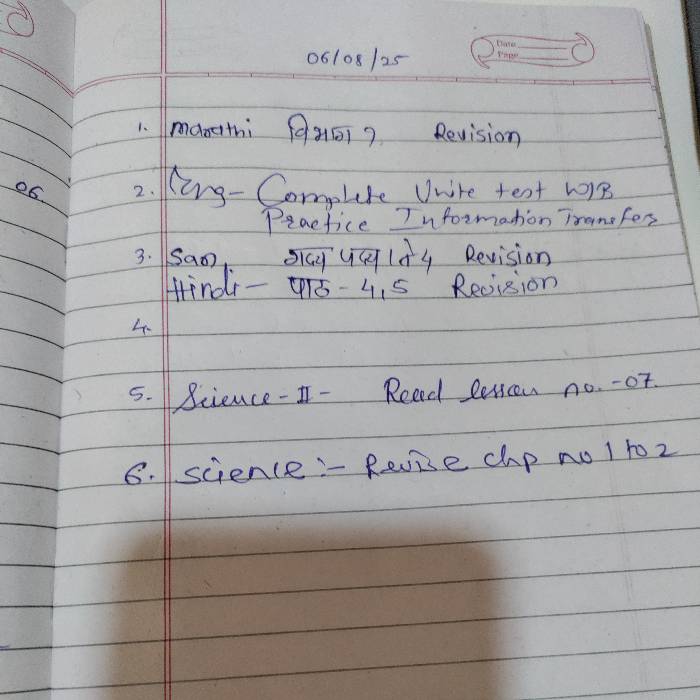 06/08/25
Date
Page
1. Marathi विभाग १ Revision
06.
2. Eng- Complete Unite test W/B
Practice Information Transfer
3. San, गद्य पद्य 1 ते 4 Revision
Hindi - पाठ - 4,5 Revision
4.
5. Science-II- Read lesson no.-07.
6. science:- Revise chp no 1 to 2